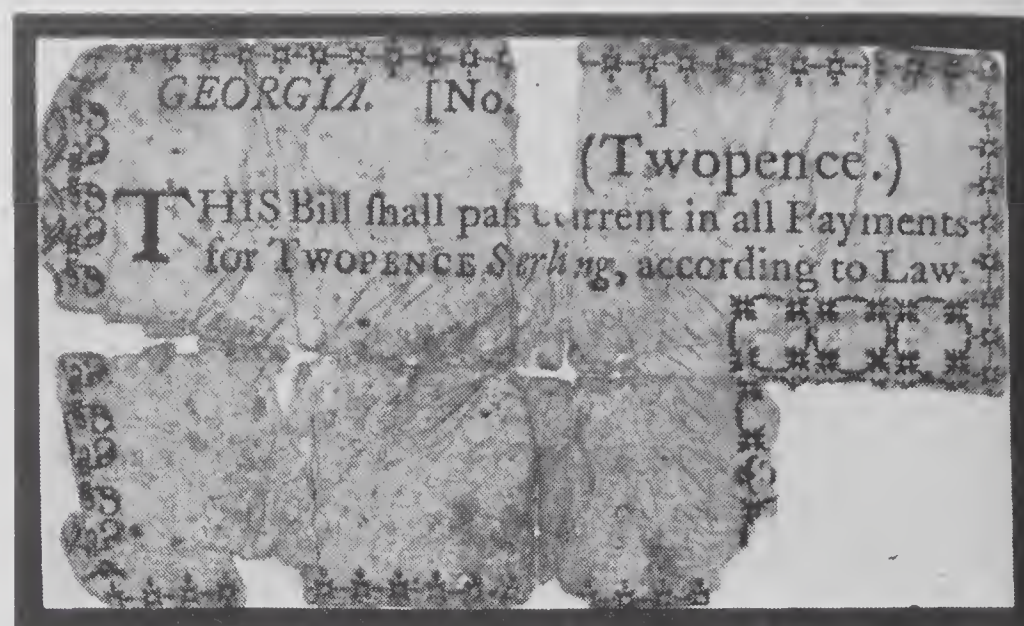 GEORGIA. [No. ]
(Twopence.)
THIS Bill ſhall paſs current in all Payments
for TWOPENCE Sterling, according to Law